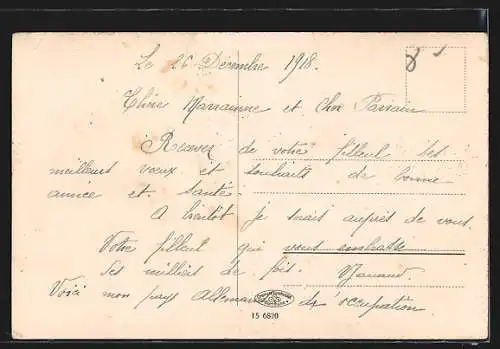 Le 26 Décembre 1918.
8
Chère Marrainne et Cher Parrain
Recevez de votre filleul ses
meilleurs vœux et souhaits de bonne
année et santé.
A bientôt je serais auprès de vous.
Votre filleul qui vous embrasse
des milliers de fois.
Voici mon pays Allemand d'occupation.
15 6820